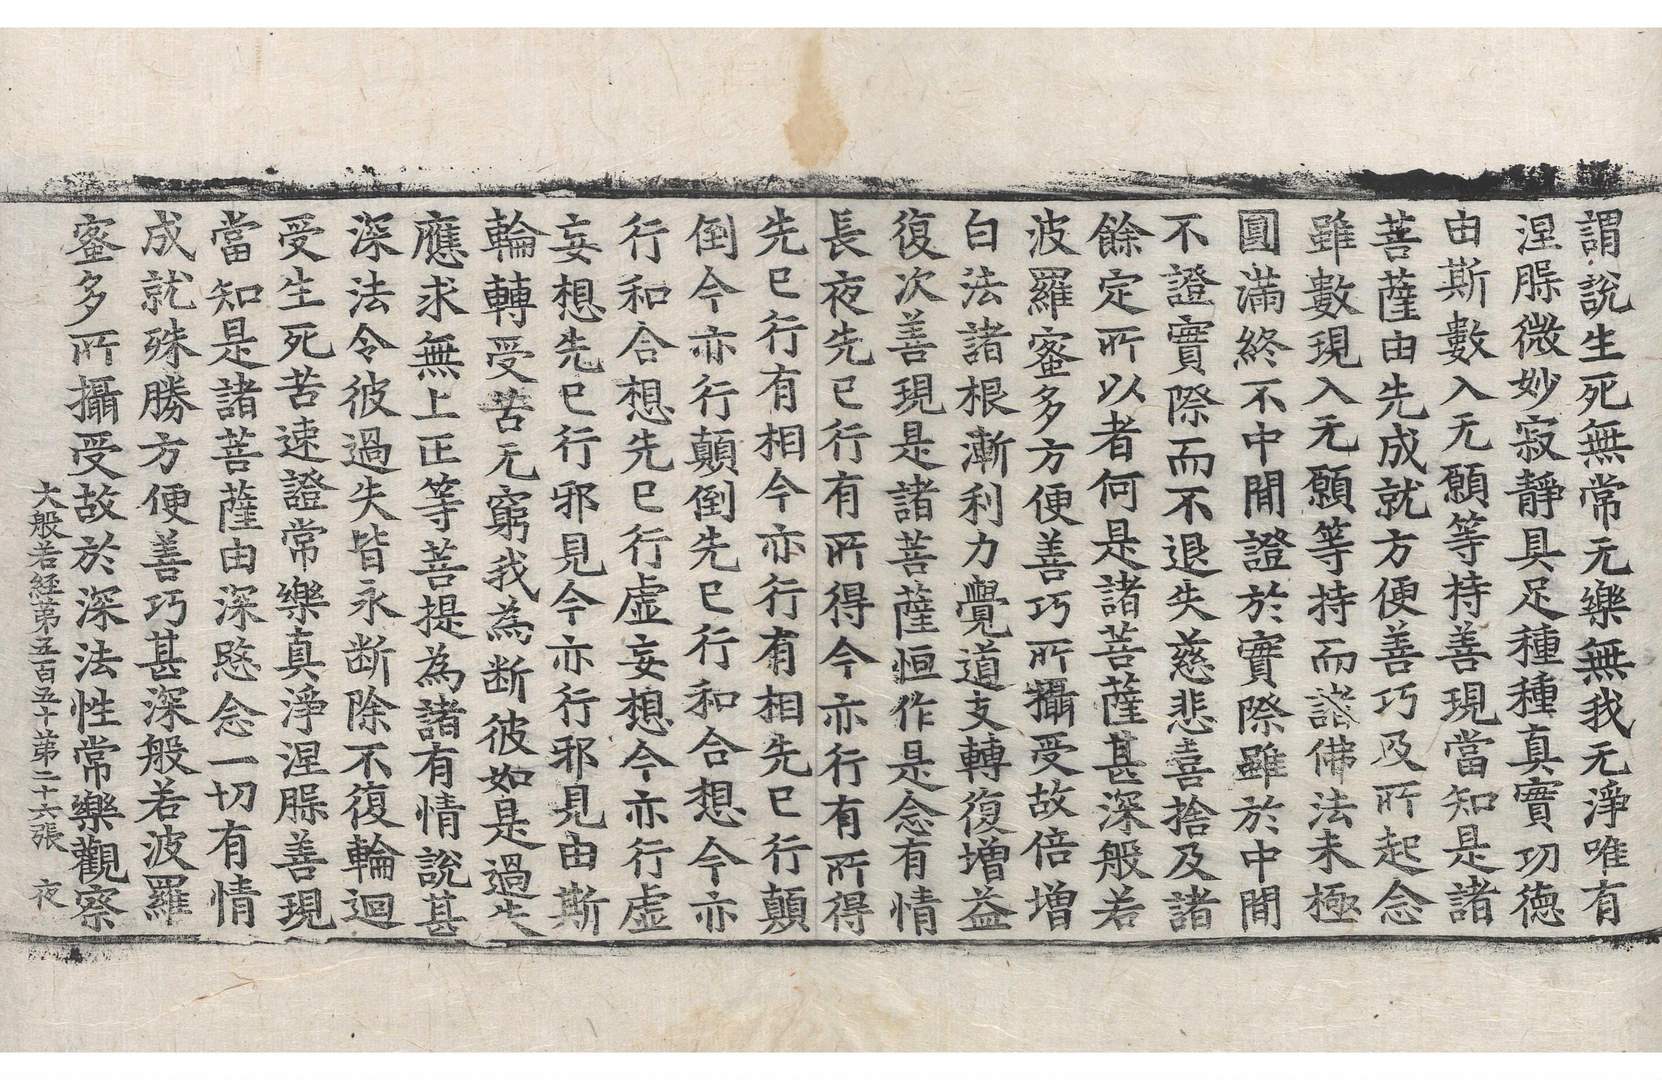 謂說生死無常无樂無我无淨唯有
涅槃微妙寂靜具足種種真實功德
由斯數入无願等持善現當知是諸
菩薩由先成就方便善巧及所起念
雖數現入无願等持而諸佛法未極
圓滿終不中閒證於實際雖於中閒
不證實際而不退失慈悲喜捨及諸
餘定所以者何是諸菩薩甚深般若
波羅蜜多方便善巧所攝受故倍增
白法諸根漸利力覺道支轉復增益
復次善現是諸菩薩恒作是念有情
長夜先已行有所得今亦行有所得
先已行有相今亦行有相先已行顛
倒今亦行顛倒先已行和合想今亦
行和合想先已行虛妄想今亦行虛
妄想先已行邪見今亦行邪見由斯
輪轉受苦无窮我為斷彼如是過失
應求無上正等菩提為諸有情說甚
深法令彼過失皆永斷除不復輪迴
受生死苦速證常樂真淨涅槃善現
當知是諸菩薩由深愍念一切有情
成就殊勝方便善巧甚深般若波羅
蜜多所攝受故於深法性常樂觀察
大般若經第五百五十第二十六張 夜